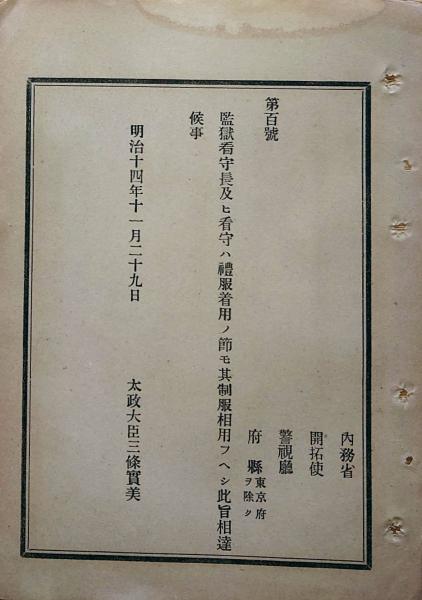 第百號
內務省
開拓使
警視廳
府縣東京府ヲ除ク
監獄看守長及ヒ看守ハ禮服着用ノ節モ其制服相用フヘシ此旨相達
候事
明治十四年十一月二十九日
太政大臣三條實美